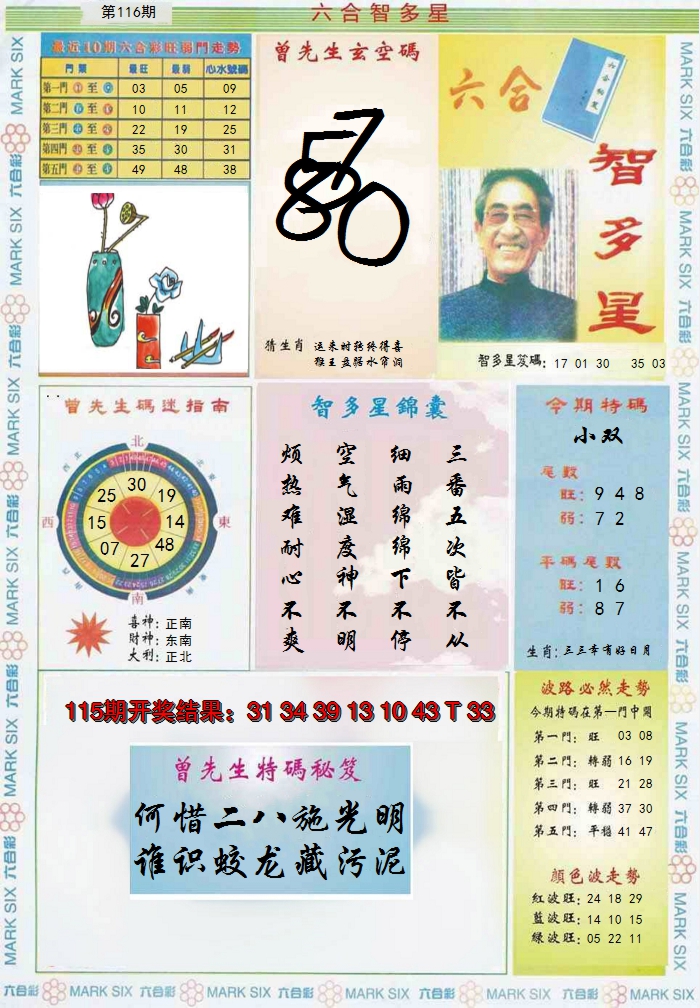 第116期
六合智多星
最近10期六合彩旺弱門走勢
門類 最旺 最弱 心水號碼
第一門 至 03 05 09
第二門 至 10 11 12
第三門 至 22 19 25
第四門 至 35 30 31
第五門 至 49 48 38
曾先生玄空碼
5 7
8 0
猜生肖 运来时转终得喜
猴王盘踞水帘洞
六合
智多星
智多星笈碼: 17 01 30 35 03
曾先生碼迷指南
北
西北
東北
西
東
南
30
19
14
48
27
07
15
25
喜神: 正南
財神: 东南
大利: 正北
智多星錦囊
三番五次皆不从
细雨绵绵下不停
空气湿度神不明
烦热难耐心不爽
今期特碼
小双
尾數
旺: 9 4 8
弱: 7 2
平碼尾數
旺: 1 6
弱: 8 7
生肖: 三三幸有好日月
115期开奖结果：31 34 39 13 10 43 T 33
曾先生特碼秘笈
何惜二八施光明
谁识蛟龙藏污泥
波路必然走勢
今期特碼在第一門中開
第一門: 旺 03 08
第二門: 轉弱 16 19
第三門: 旺 21 28
第四門: 轉弱 37 30
第五門: 平穩 41 47
顏色波走勢
紅波旺: 24 18 29
藍波旺: 14 10 15
綠波旺: 05 22 11
MARK SIX 六合彩